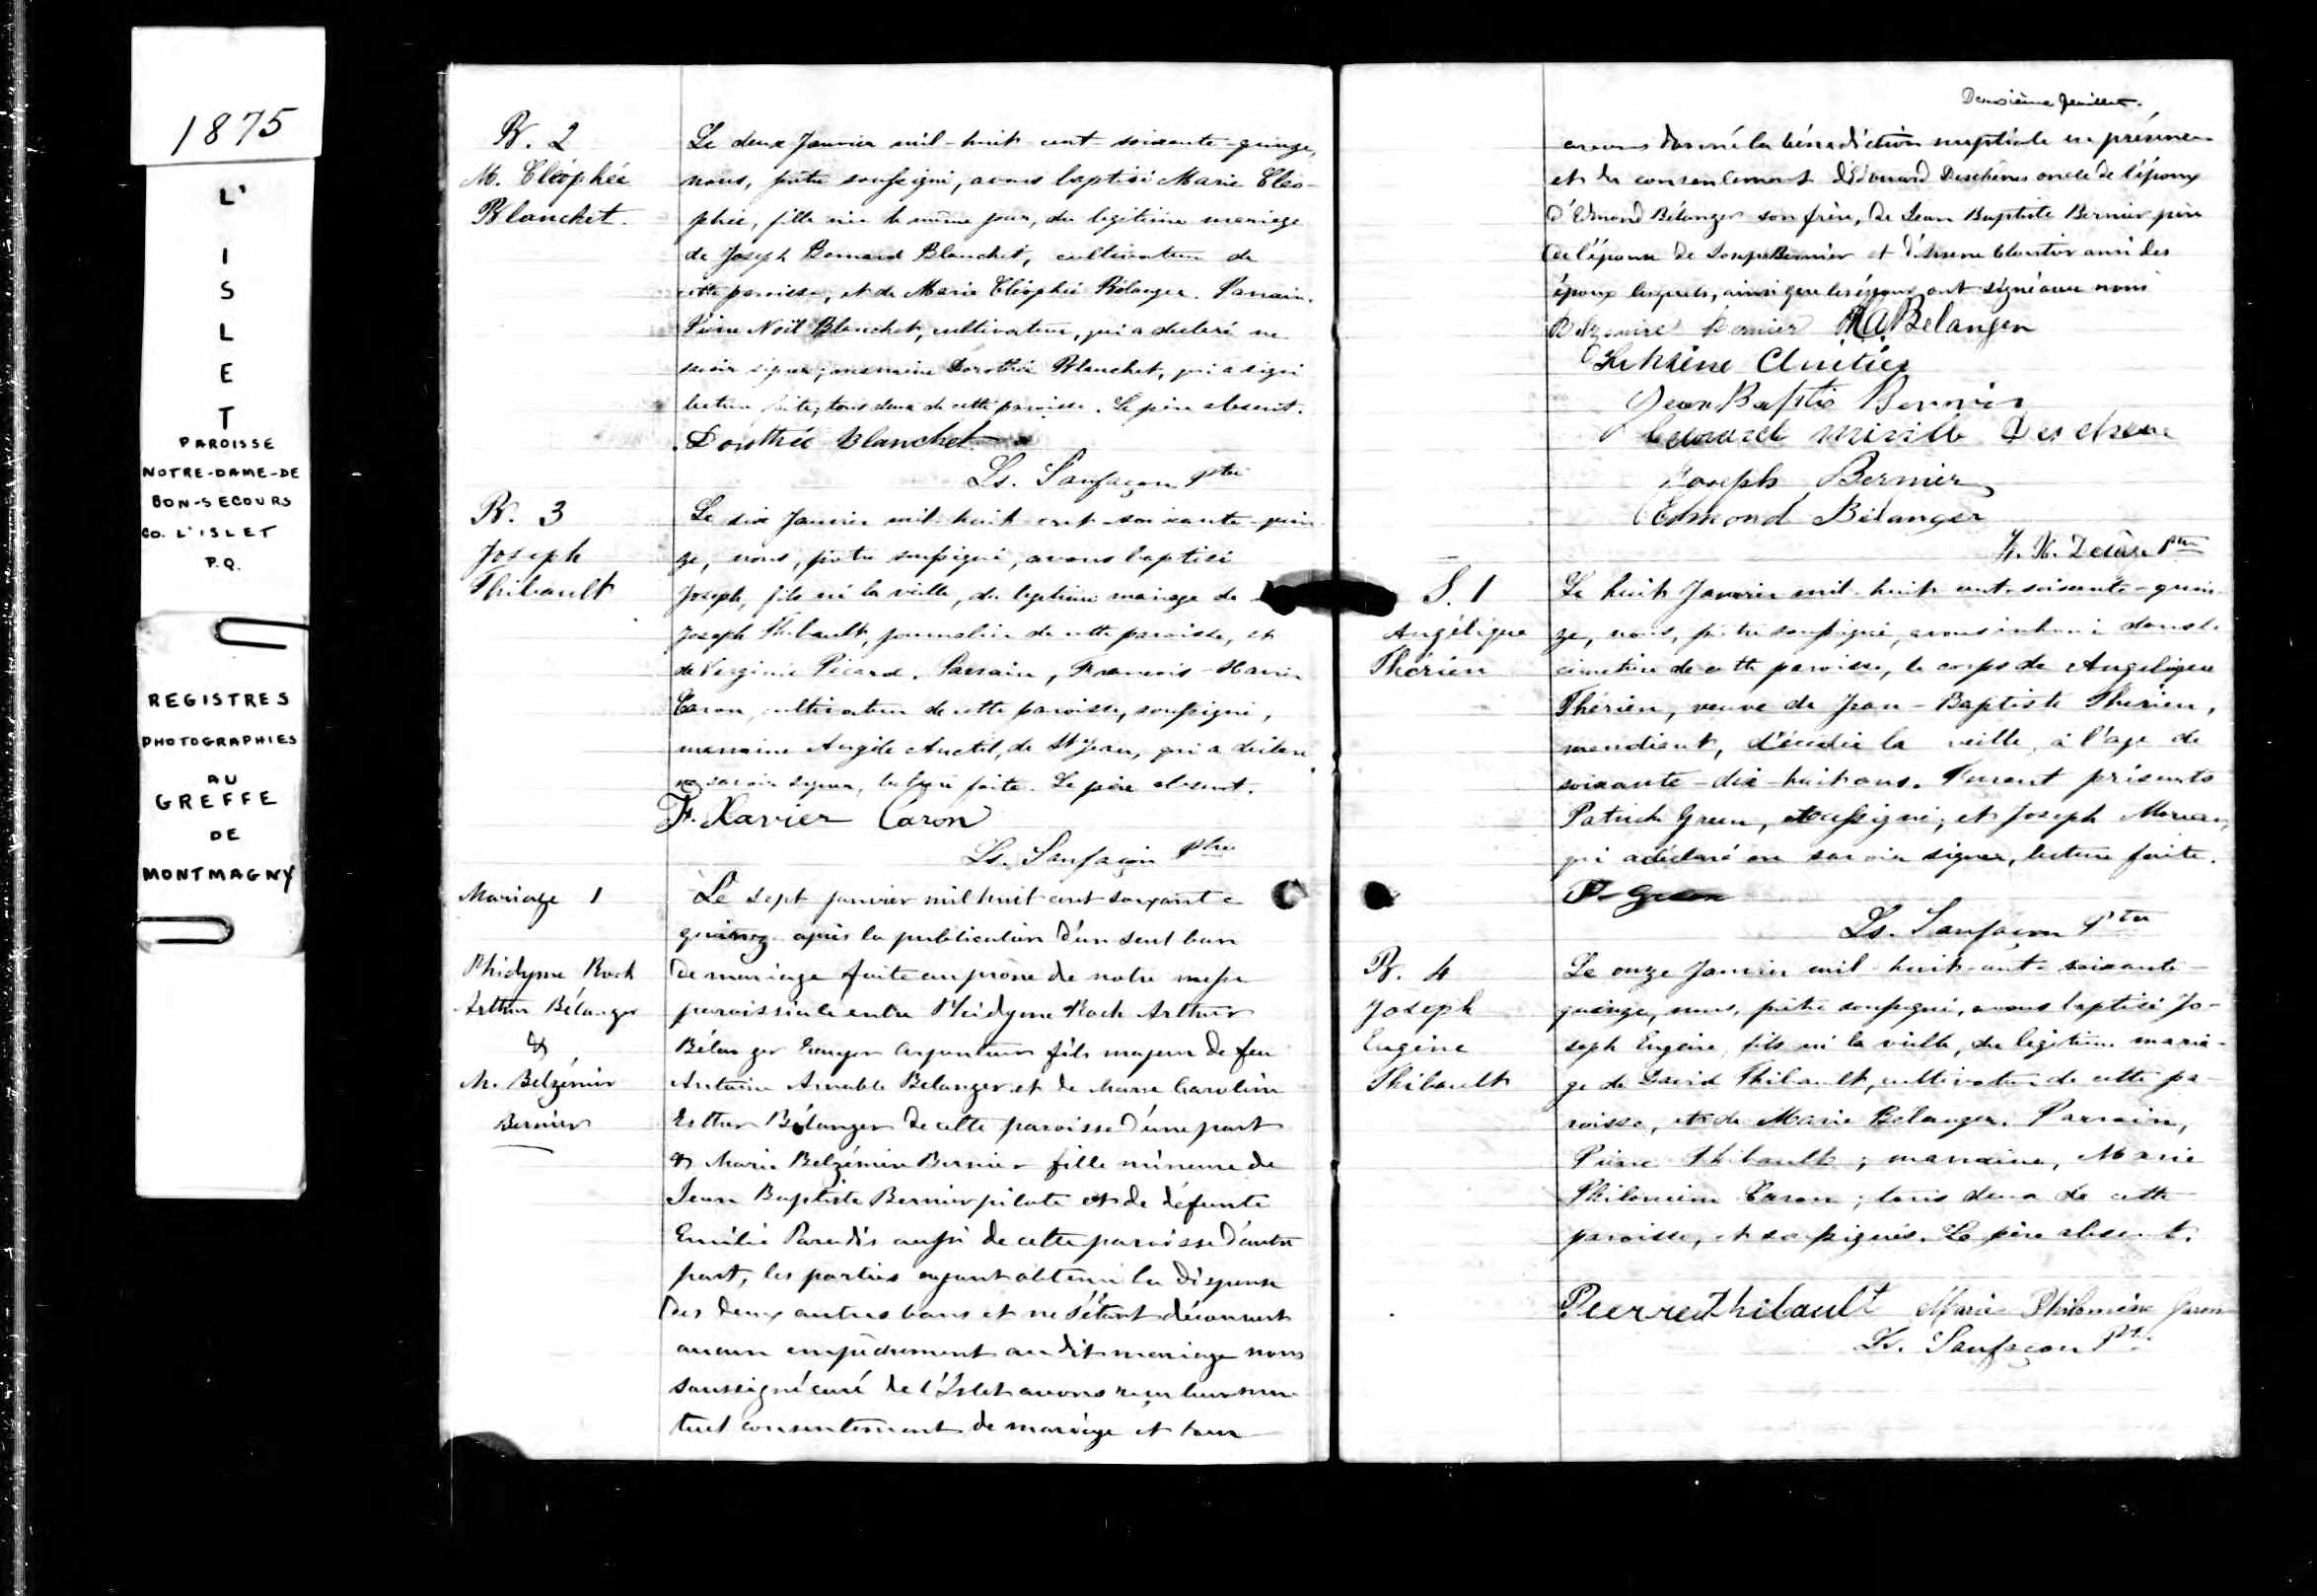 1875
L'
I
S
L
E
T
PAROISSE
NOTRE-DAME-DE
BON-SECOURS
CO. L'ISLET
P.Q.
REGISTRES
PHOTOGRAPHIES
AU
GREFFE
DE
MONTMAGNY
B. 2
M. Cléophée
Blanchet.
Le deux Janvier mil-huit-cent-soixante-quinze,
nous, prêtre soussigné, avons baptisé Marie Cléo-
phée, fille née le même jour, du légitime mariage
de Joseph Bernard Blanchet, cultivateur de
cette paroisse, et de Marie Cléophée Bélanger. Parrain,
Pierre Noël Blanchet, cultivateur, qui a déclaré ne
savoir signer; marraine Dorothée Blanchet, qui a signé
lecture faite; tous deux de cette paroisse. Le père absent.
Dorothée Blanchet
Ls. Sanfaçon Ptre
B. 3
Joseph
Thibault
Le six Janvier mil-huit-cent-soixante-quin-
ze, nous, prêtre soussigné, avons baptisé
Joseph, fils né la veille, du légitime mariage de
Joseph Thibault, journalier de cette paroisse, et
de Verginie Picard. Parrain, François-Xavier
Caron, cultivateur de cette paroisse, soussigné,
marraine Angèle Anctil, de St Jean, qui a déclaré
ne savoir signer, lecture faite. Le père absent.
F. Xavier Caron
Ls. Sanfaçon Ptre
Mariage 1
Phidyme Roch
Arthur Bélanger
&
M. Belzémire
Bernier
Le sept janvier mil huit cent soixante
quinze après la publication d'un seul ban
de mariage faite au prône de notre messe
paroissiale entre Phidyme Roch Arthur
Bélanger Ecuyer Arpenteur fils majeur de feu
Antoine Amable Bélanger et de Marie Caroline
Esther Bélanger de cette paroisse d'une part
& Marie Belzémire Bernier fille mineure de
Jean Baptiste Bernier pilote et de défunte
Emilie Paradis aussi de cette paroisse d'autre
part, les parties ayant obtenu la dispense
des deux autres bans et ne s'étant découvert
aucun empêchement au dit mariage nous
soussigné curé de l'Islet avons reçu leur mu-
tuel consentement de mariage et leur
Deuxième feuillet.
avons donné la bénédiction nuptiale en présence
et du consentement d'Edouard Deschênes oncle de l'époux
d'Edmond Bélanger son frère, de Jean Baptiste Bernier père
de l'épouse de Joseph Bernier et d'Arsène Cloutier amis des
époux lesquels, ainsi que les époux ont signé avec nous
Belzémire Bernier P.R.A. Bélanger
Arsène Clutier
Jean Baptis Bernier
Edouard Miville Deschene
Joseph Bernier
Edmond Bélanger
F. X. Delâge Ptre
S. 1
Angélique
Thérien
Le huit Janvier mil-huit-cent-soixante-quin-
ze, nous, prêtre soussigné, avons inhumé dans le
cimetière de cette paroisse, le corps de Angélique
Thérien, veuve de Jean-Baptiste Thérien,
mendiant, décédée la veille, à l'age de
soixante-dix-huit ans. Furent présents
Patrick Green, soussigné, et Joseph Morean,
qui a déclaré ne savoir signer, lecture faite.
P Green
Ls. Sanfaçon Ptre
B. 4
Joseph
Eugène
Thibault
Le onze Janvier mil-huit-cent-soixante-
quinze, nous, prêtre soussigné, avons baptisé Jo-
seph Eugène, fils né la veille, du légitime maria-
ge de David Thibault, cultivateur de cette pa-
roisse, et de Marie Bélanger. Parrain,
Pierre Thibault; marraine, Marie
Philomène Caron; tous deux de cette
paroisse, et soussignés. Le père absent.
Pierre Thibault Marie Philomène Caron
Ls. Sanfaçon Ptre